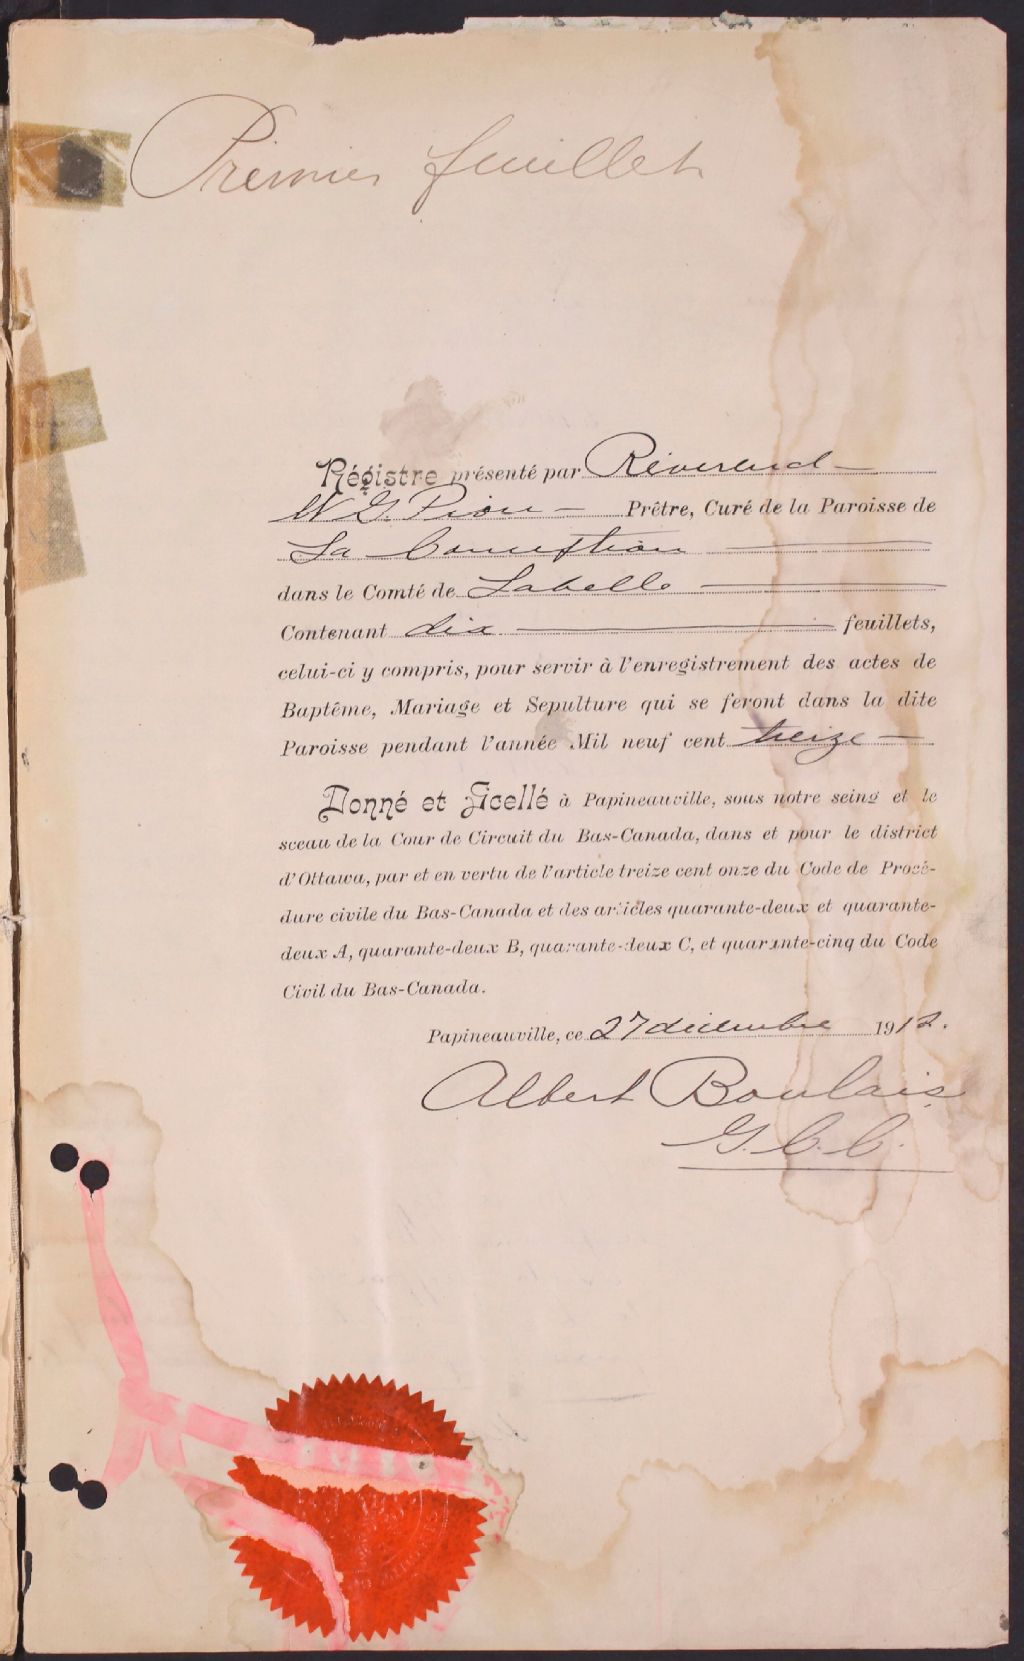 Premier feuillet
Régistre présenté par Révérend
W G. Pion Prêtre, Curé de la Paroisse de
La Conception
dans le Comté de Labelle
Contenant dix feuillets,
celui-ci y compris, pour servir à l'enregistrement des actes de
Baptême, Mariage et Sepulture qui se feront dans la dite
Paroisse pendant l'année Mil neuf cent treize
Donné et Scellé à Papineauville, sous notre seing et le
sceau de la Cour de Circuit du Bas-Canada, dans et pour le district
d'Ottawa, par et en vertu de l'article treize cent onze du Code de Procé-
dure civile du Bas-Canada et des articles quarante-deux et quarante-
deux A, quarante-deux B, quarante-deux C, et quarante-cinq du Code
Civil du Bas-Canada.
Papineauville, ce 27 décembre 1912.
Albert Boulais
G. C. C.